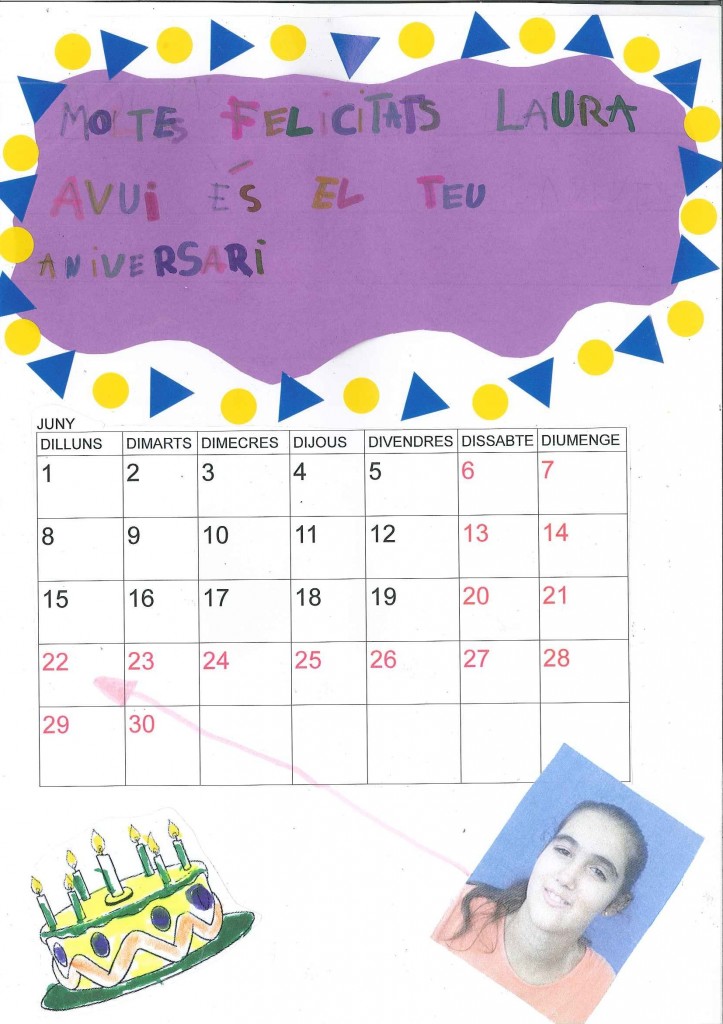 MOLTES FELICITATS LAURA
AVUI ÉS EL TEU
ANIVERSARI
JUNY
DILLUNS DIMARTS DIMECRES DIJOUS DIVENDRES DISSABTE DIUMENGE
1 2 3 4 5 6 7
8 9 10 11 12 13 14
15 16 17 18 19 20 21
22 23 24 25 26 27 28
29 30